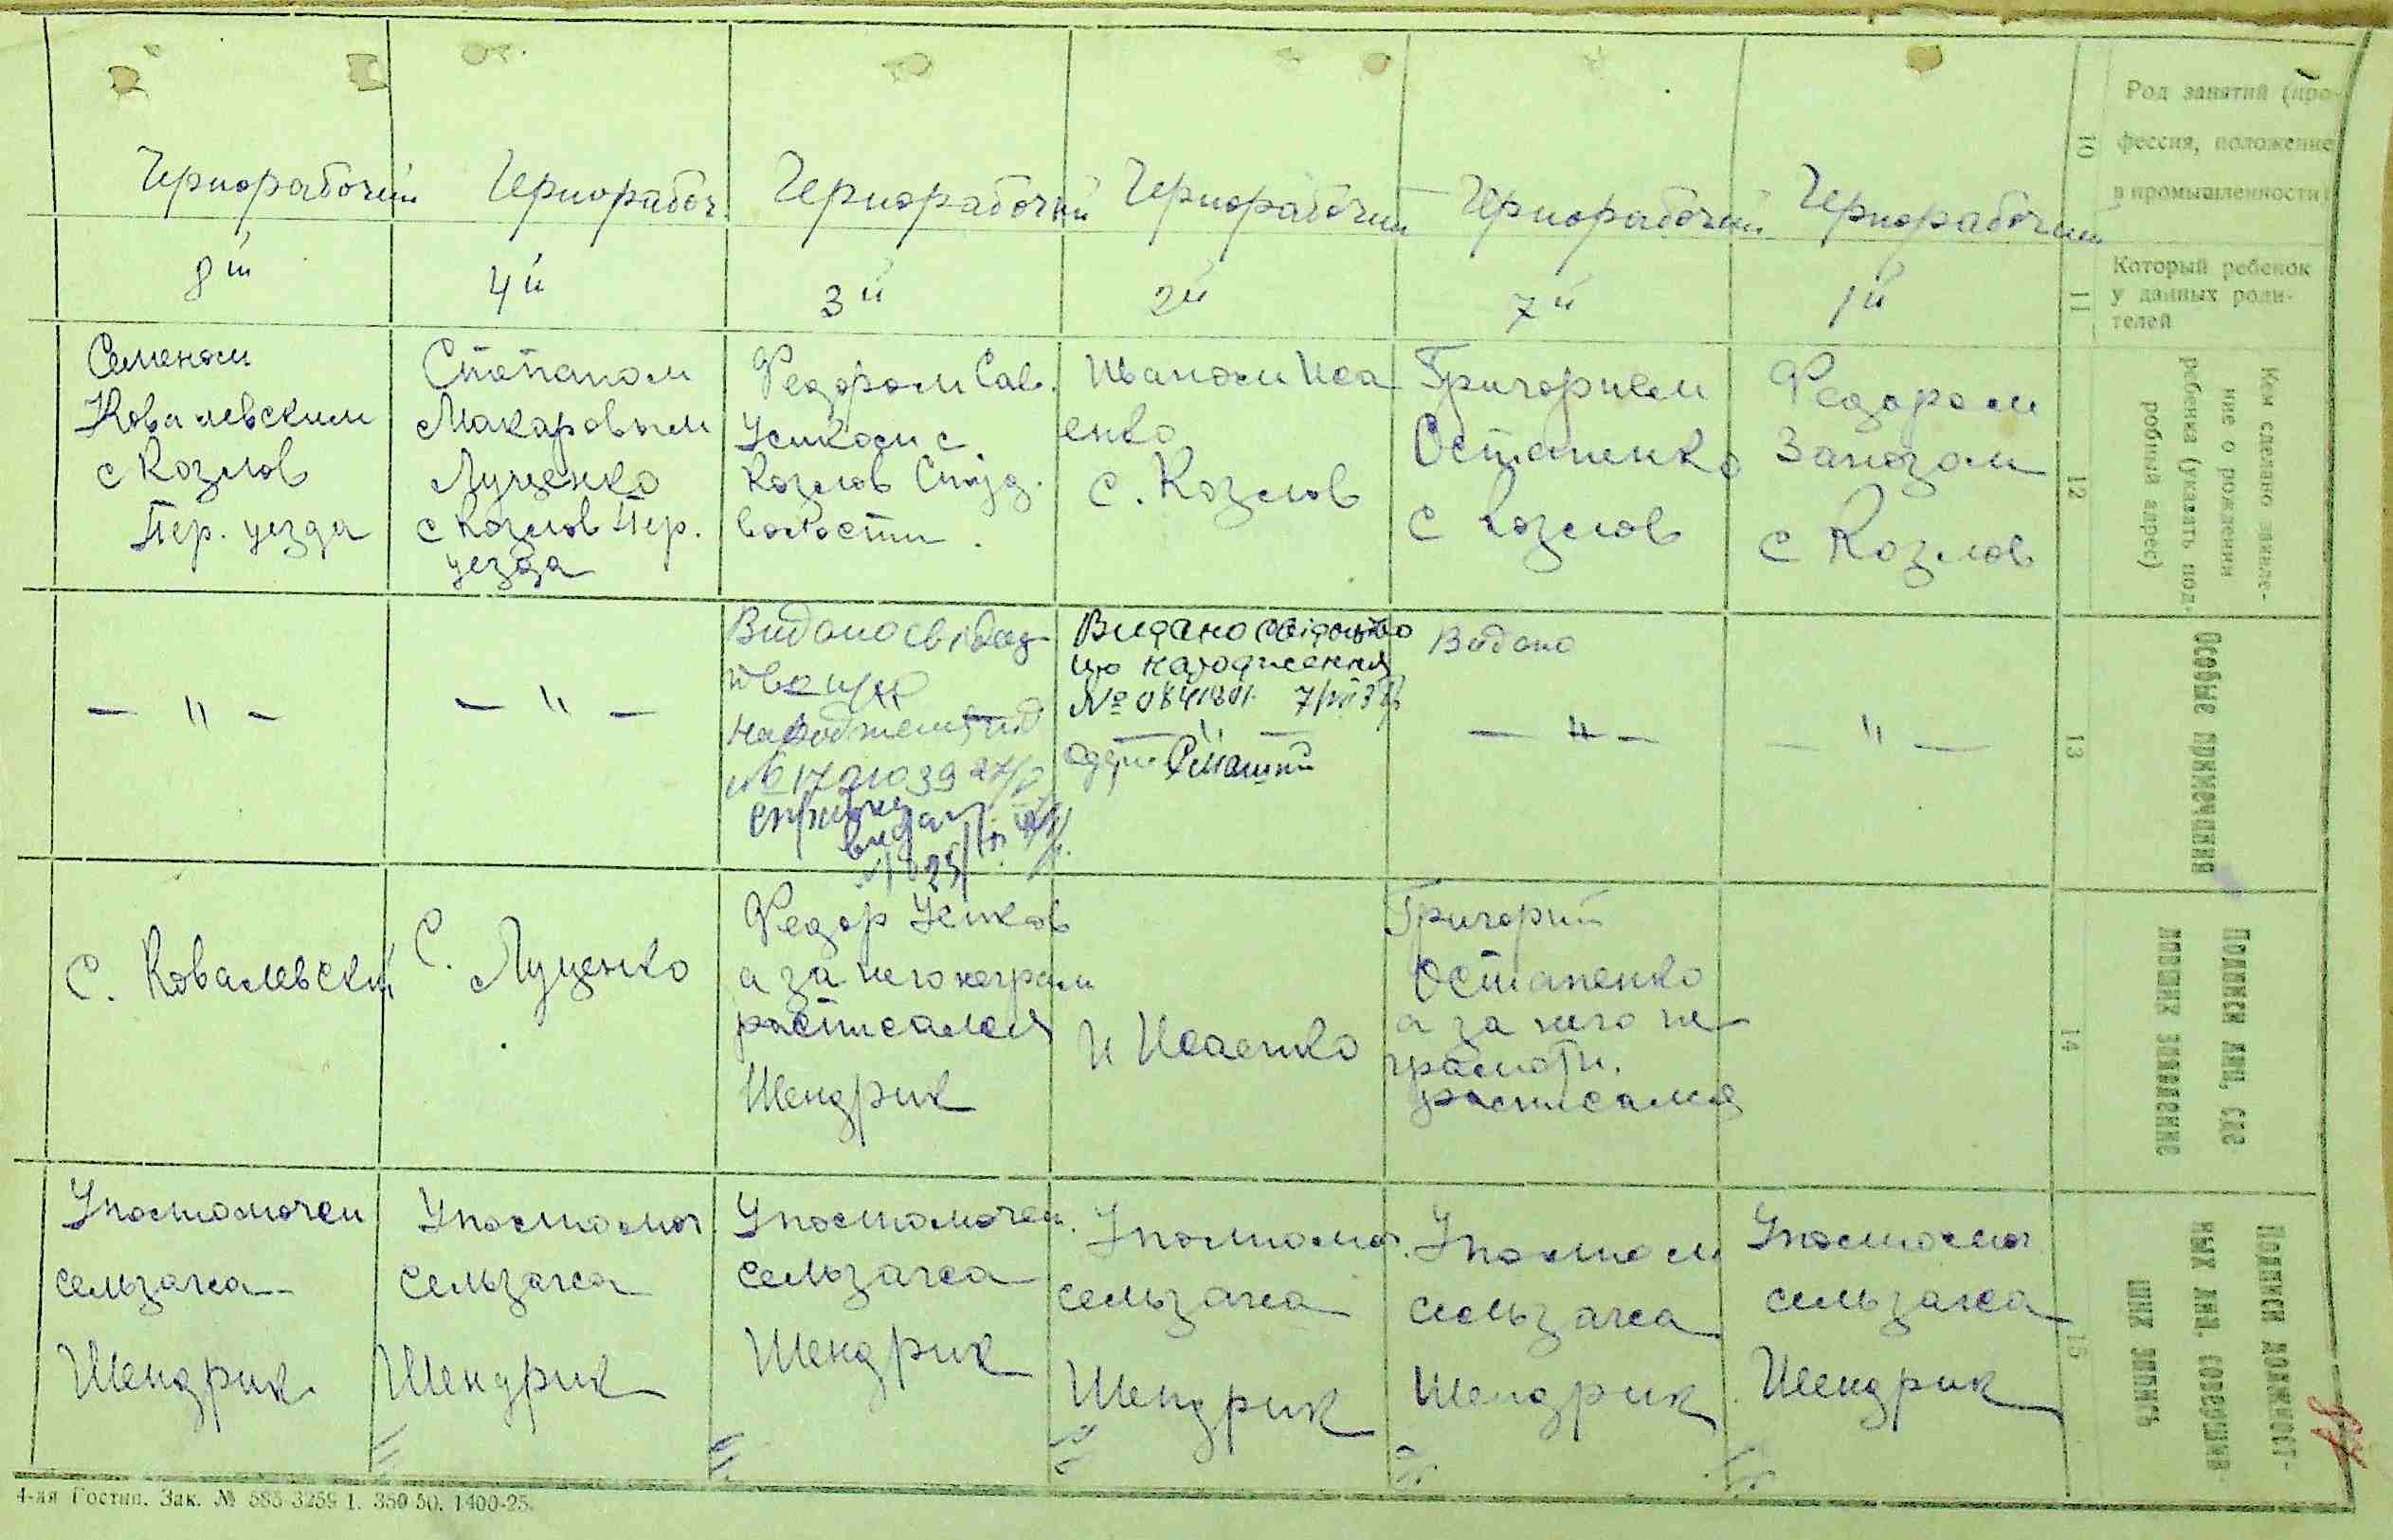 Чернорабочий Чернорабоч. Чернорабочий Чернорабочий Чернорабочий Чернорабочий
10
Род занятий (про-
фессия, положение
в промышленности)
8й 4й 3й 2й 7й 1й
11
Который ребенок
у данных роди-
телей
Семеном
Ковалевским
с Козлов
Пер. уезда
Степаном
Макаровым
Луценко
с Козлов Пер.
уезда
Федором Сав.
с
Козлов Студ.
волости.
Иваном Иса
енко
с. Козлов
Григорием
Остапенко
с Козлов
Федором
с Козлов
12
Кем сделано заявле-
ние о рождении
ребенка (указать под-
робный адрес)
— " —
— " —
Видано свідоц
тво про
народження
№
справку
видан
Видано свідоцтво
про народження
№
— " —
Видано
— " —
— " —
13
Особые примечания
С. Ковалевский
С. Луценко
Федор
а за него неграм
расписался
Шендрик
И Исаенко
Григорий
Остапенко
а за него не
грамотн.
расписался
14
Подписи лиц, сде-
лавших заявление
Уполномочен
сельзагса
Шендрик
Уполномоч
сельзагса
Шендрик
Уполномочен.
сельзагса
Шендрик
Уполномоч.
сельзагса
Шендрик
Уполном
сельзагса
Шендрик
Уполномоч
сельзагса
Шендрик
15
Подписи должност-
ных лиц, совершив-
ших запись
4-ая Гостип. Зак. № 585-3259 1. 350 50. 1400-25.